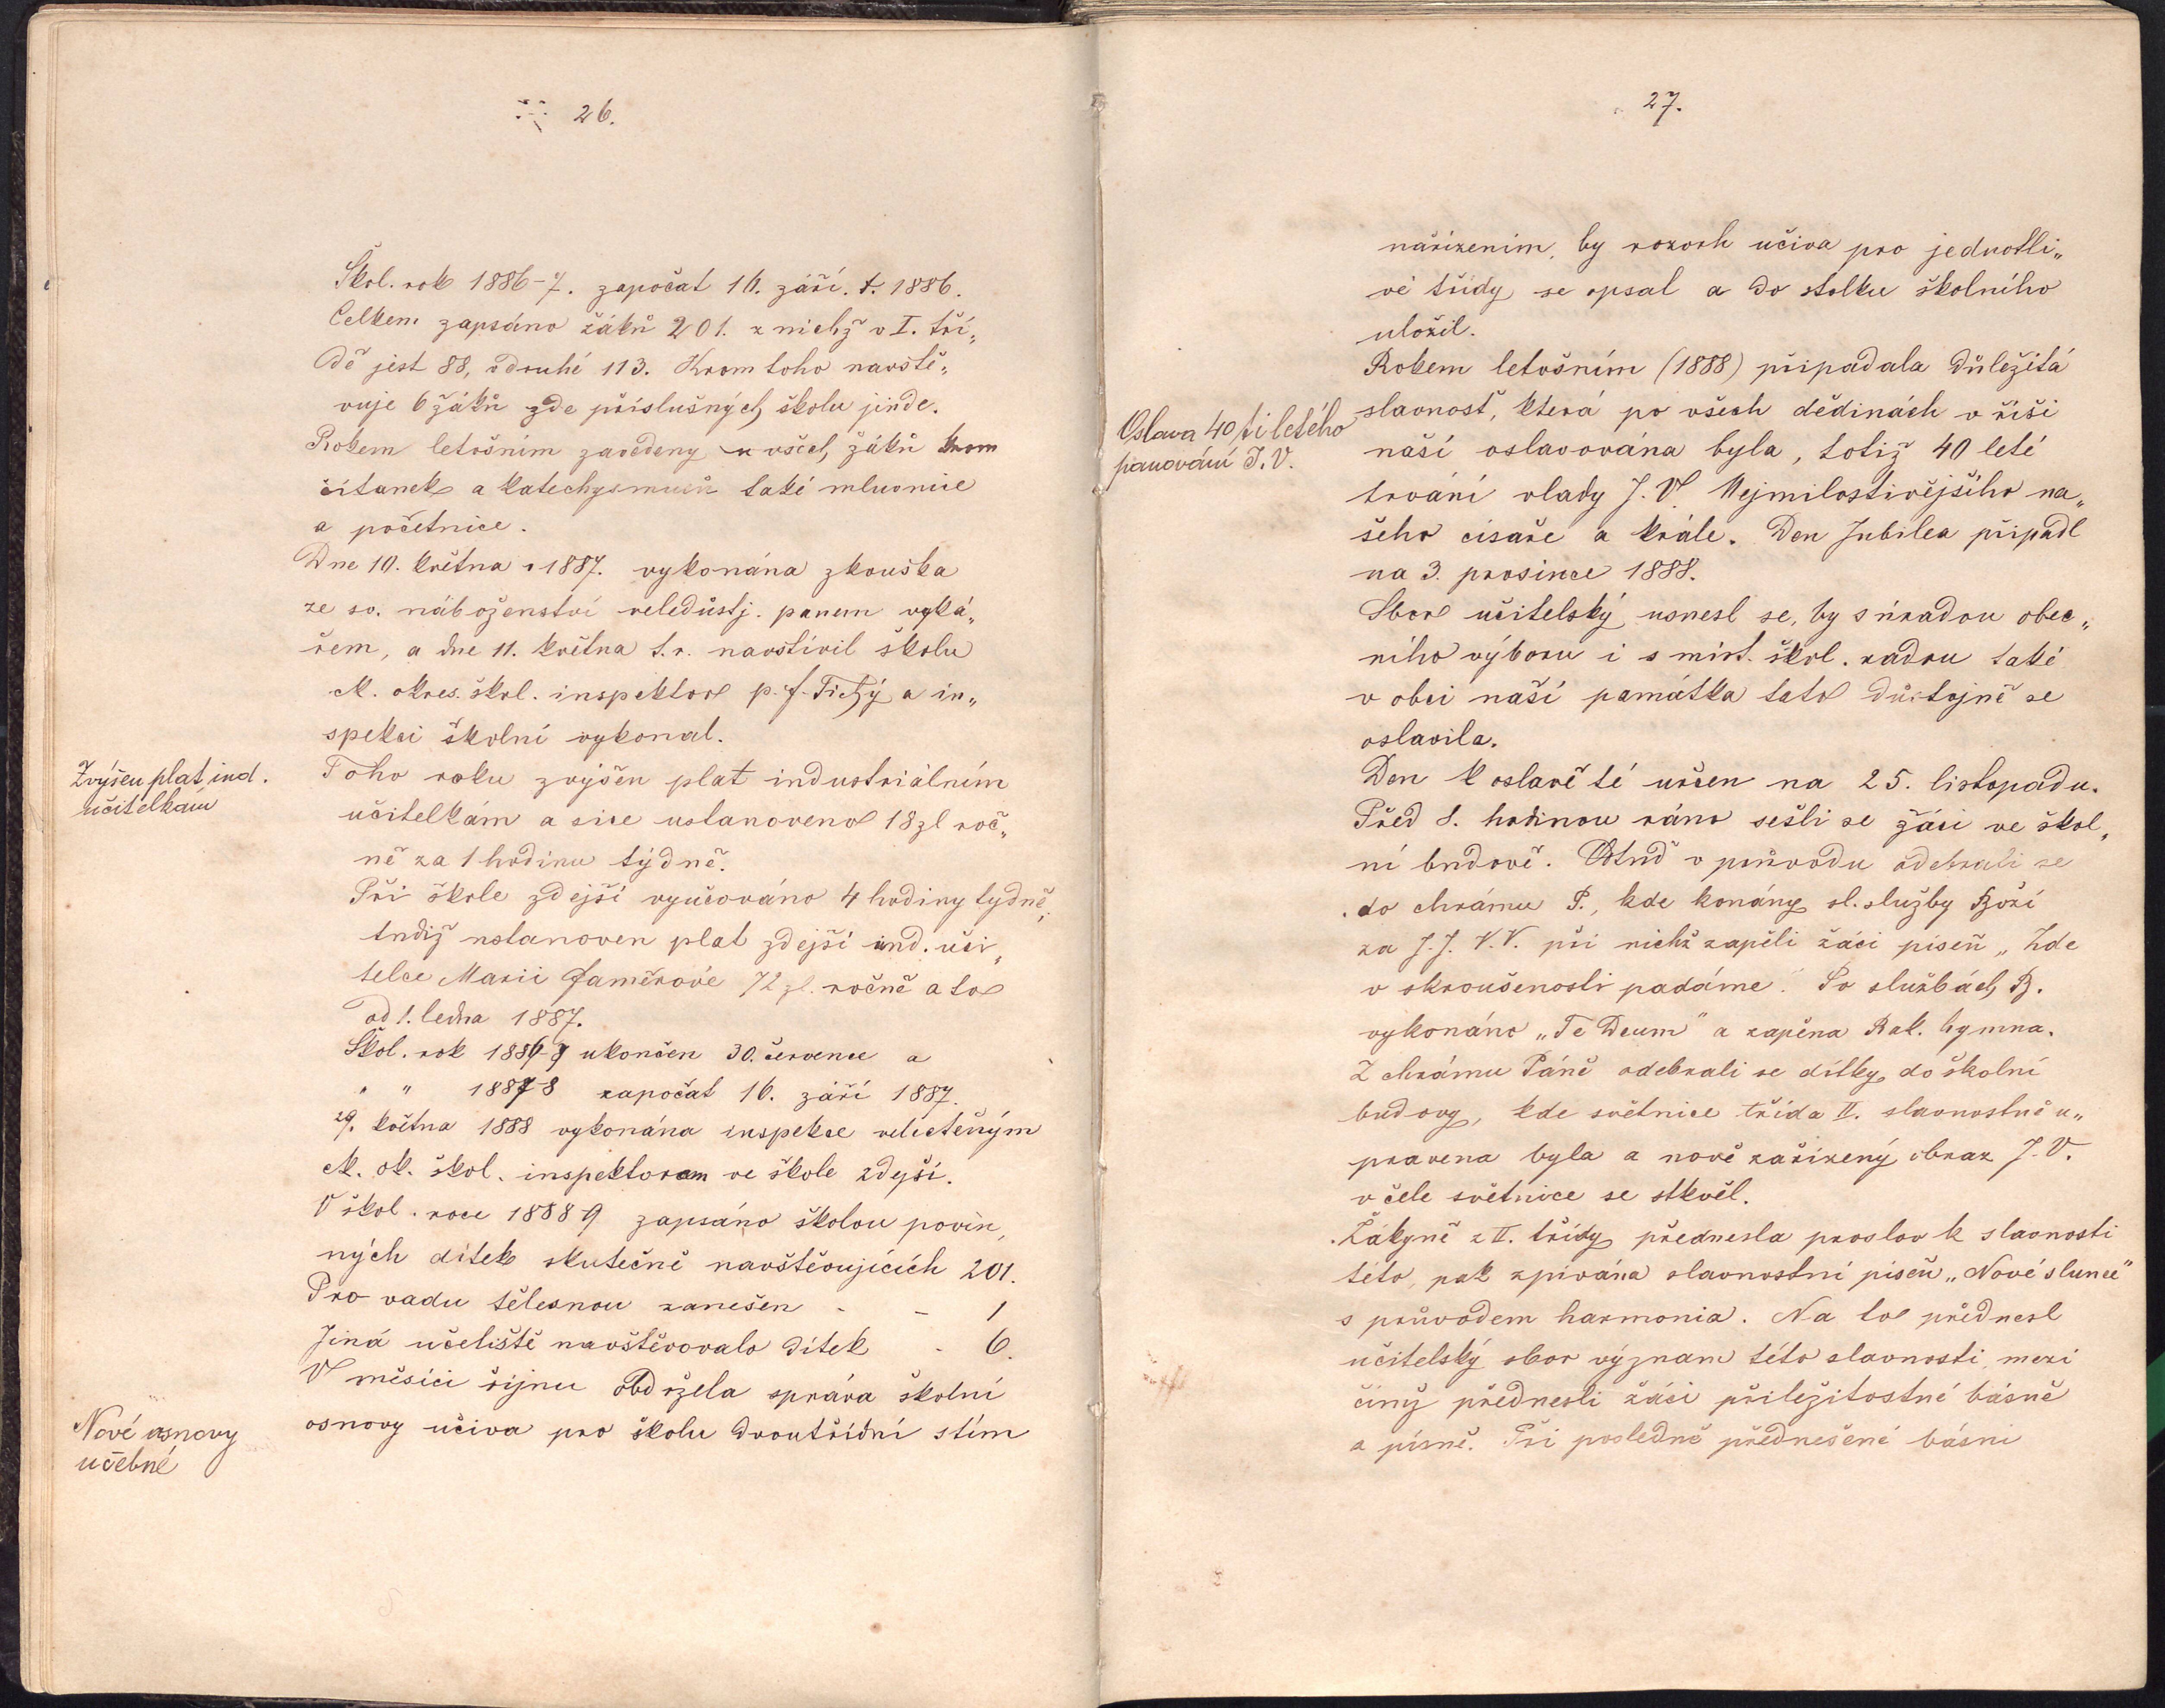 26.
Škol. rok 1886-7. započat 16. září. t. 1886.
Celkem zapsáno žáků 201. z nichž v I. tří„
dě jest 88, v druhé 113. Krom toho navště„
vuje 6 žáků zde příslušných školu jinde.
Rokem letošním zavedeny u všech žáků krom
čítanek a katechysmusů také mluvnice
a početnice.
Dne 10. května 1887. vykonána zkouška
ze sv. náboženství veledůstj. panem vyká„
řem, a dne 11. května t. r. navštívil školu
c.k. okres. škol. inspektor p. f. Tichý a in„
spekci školní vykonal.
Zvýšen plat ind.
učitelkám
Toho roku zvýšen plat industriálním
učitelkám a sice ustanoveno 18 zl roč„
ně za 1 hodinu týdně.
Při škole zdejší vyučováno 4 hodiny tydně,
tudiž ustanoven plat zdejší ind. uči„
telce Marii Jaměřové 72 zl. ročně a to
od 1. ledna 1887.
Škol. rok 1886-7 ukončen 30. července a
" " 1887-8 započat 16. září 1887.
29. května 1888 vykonána inspekce velectěným
c.k. ok. škol. inspektorem ve škole zdejší.
V škol. roce 1888-9 zapsáno školou povin„
ných dítek skutečně navštěvujících 201.
Pro vadu tělesnou zanešen - - 1
Jiná učeliště navštěvovalo dítek - 6.
V měsíci říjnu obdržela správa školní
Nové osnovy
učebné
osnovy učiva pro školu dvoutřídní stím
27.
nařízením, by rozvrh učiva pro jednotli„
vé třídy se opsal a do stolku školního
uložil.
Rokem letošním (1888) připadala důležitá
Oslava 40 ti letého
panování J. V.
slavnosť, která po všech dědinách v říši
naší oslavována byla, totiž 40 leté
trvání vlady J. V. Nejmilostivějšího na„
šeho císaře a krále. Den Jubilea připadl
na 3. prosince 1888.
Sbor učitelský usnesl se, by s úradou obec„
ního výboru i s míst. škol. radou také
v obci naší památka tato důstojně se
oslavila.
Den k oslavě té určen na 25. listopadu.
Před 8. hodinou ráno sešli se žáci ve škol„
ní budově. Odtud v průvodu odebrali se
do chrámu P., kde konány sl. služby Boží
za J. J. V. V. při nichž zapěli žáci píseň „Zde
v skroušenosti padáme". Po službách B.
vykonáno „Te Deum" a zapěna Rak. hymna.
Z chrámu Páně odebrali se dítky do školní
budovy, kde světnice třída II. slavnostně u„
pravena byla a nově zařízený obraz J. V.
v čele světnice se stkvěl.
Žákyně z II. třídy přednesla proslov k slavnosti
této, pak zpívána slavnostní píseň „Nové slunce"
s průvodem harmonia. Na to přednesl
učitelský sbor význam této slavnosti, mezi
čímž přednesli žáci příležitostné básně
a písně. Při posledně přednešené básni